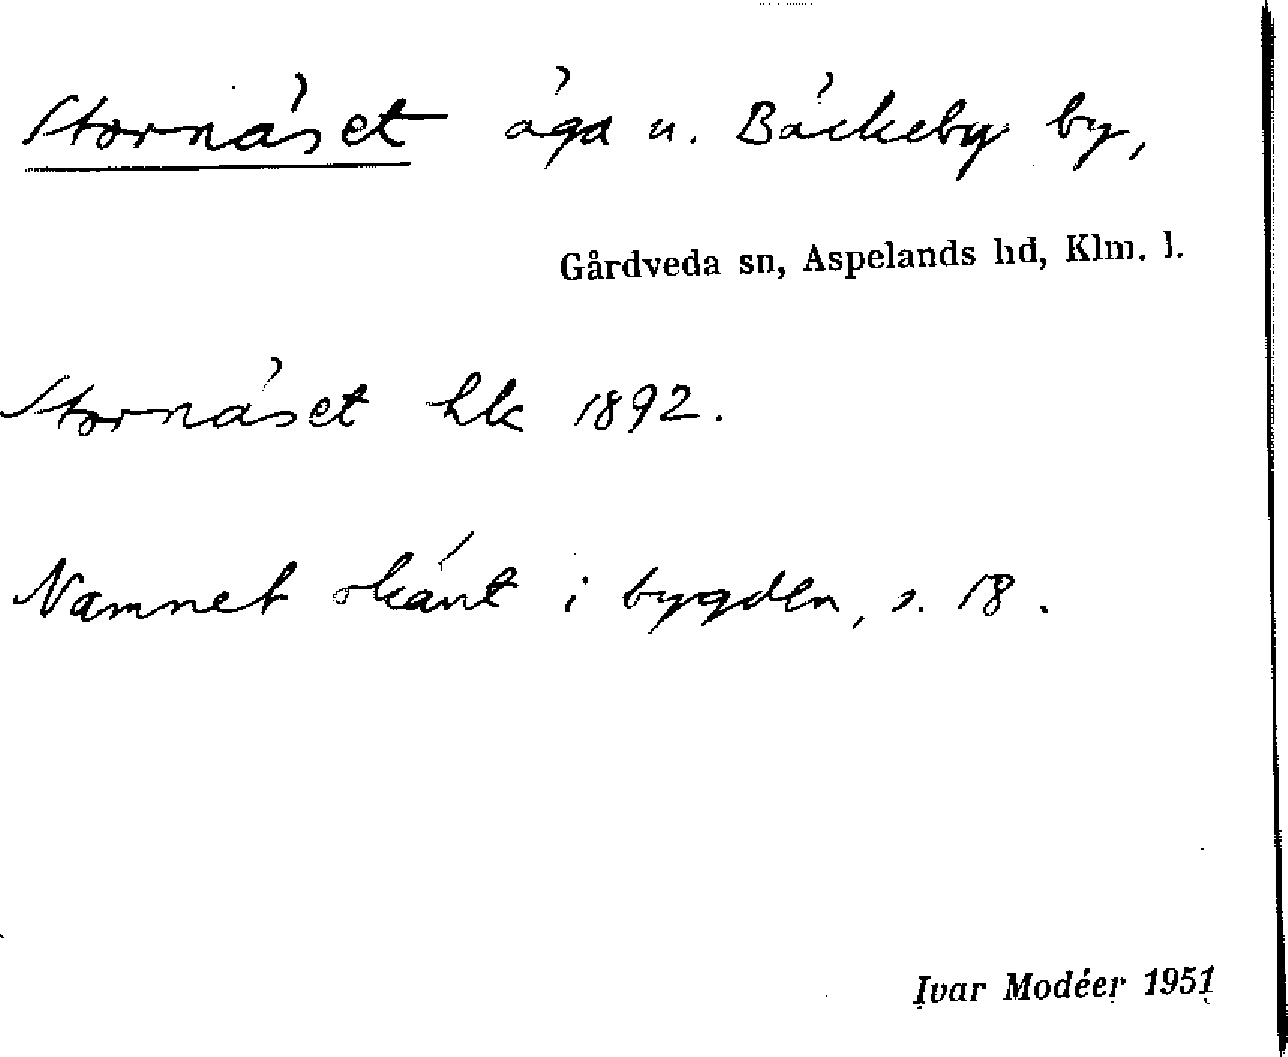 Stornäset äga u. Bäckeby by,
Gårdveda sn, Aspelands hd, Klm. l.
Stornäset hk 1892.
Namnet okänt i bygden, s. 18.
Ivar Modéer 1951